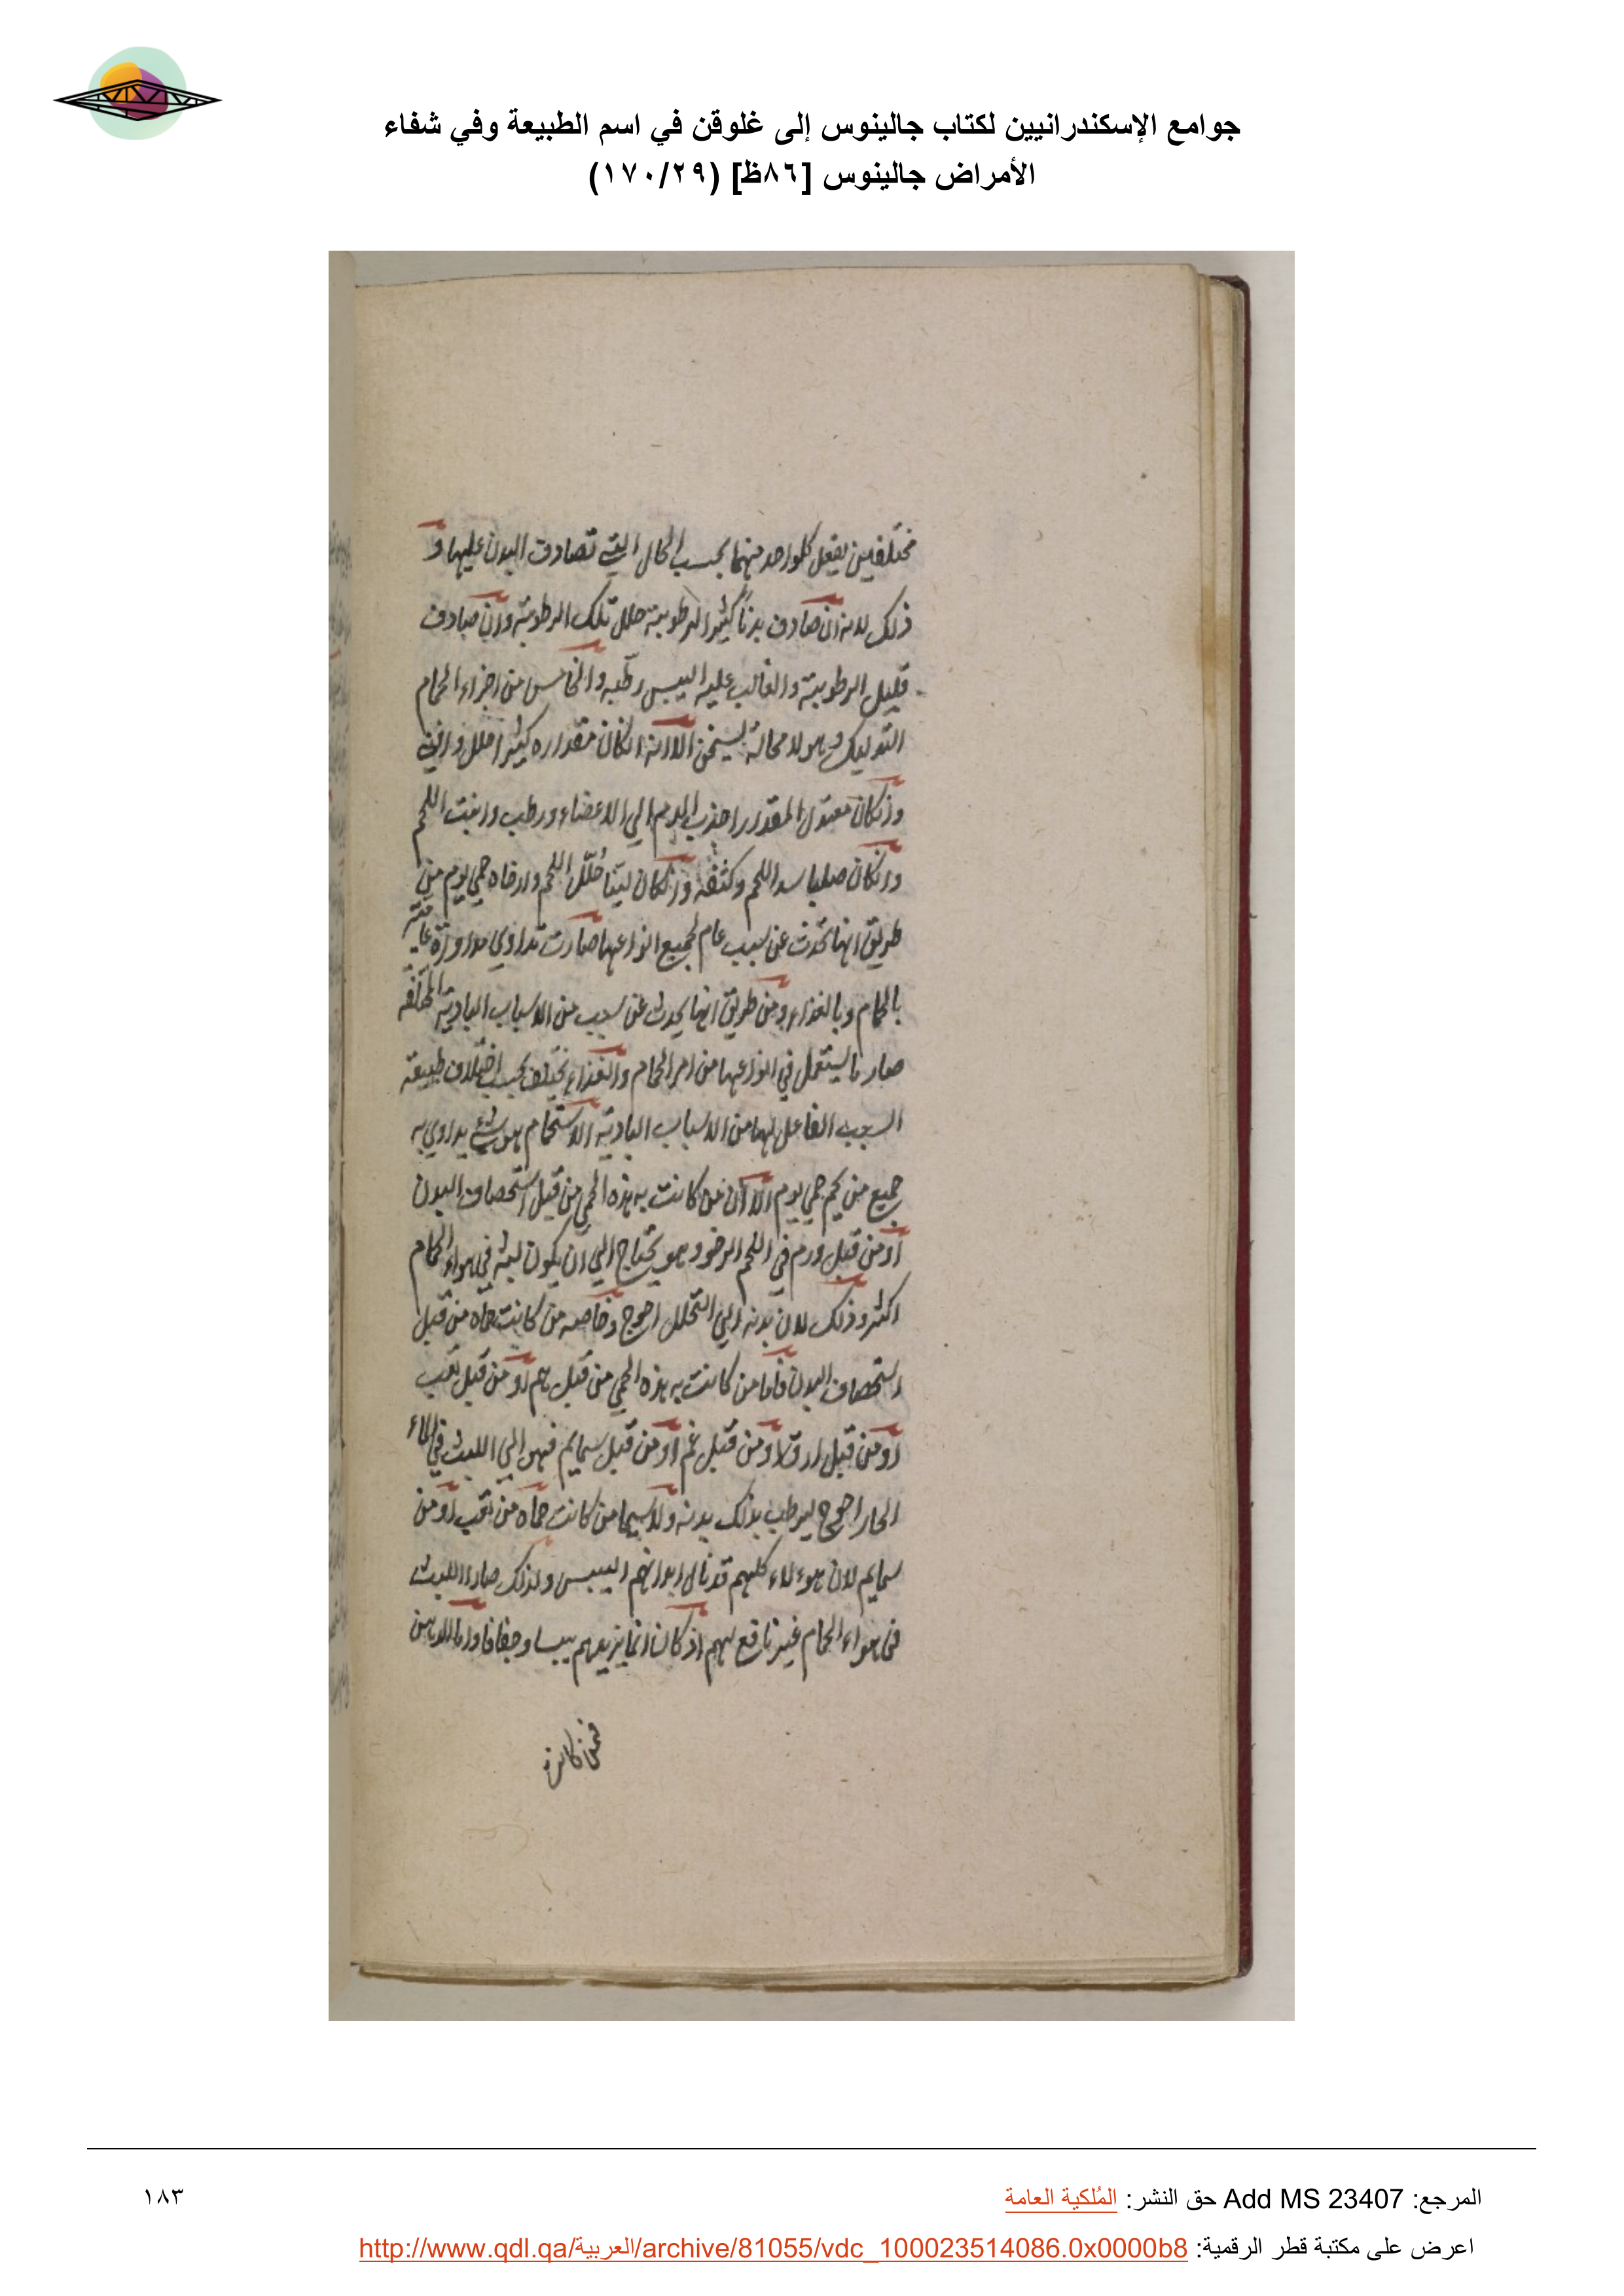 جوامع الإسكندرانيين لكتاب جالينوس إلى غلوقن في اسم الطبيعة وفي شفاء
الأمراض جالينوس [٨٦ظ] (١٧٠/٢٩)
مختلفين يفعل كلواحد منهما بحسب الحال التي تصادف البدن عليها و
ذلك لانه ان صادف بدنا كثير الرطوبة حلل تلك الرطوبة وان صادف
قليل الرطوبة والغالب عليه اليبس رطبه والخامس من اجزاء الحمام
التدليك وهو لا محالة يسخن الا انه انكان مقداره كثيرا حلل و
وانكان معتدل المقدار اجذب الدم الي الاعضاء ورطب وانبت اللحم
وانكان صلبا سد اللحم وكثفه وانكان لينا حلل اللحم وارخاه حمي يوم من
طريق انها تحدث عن سبب عام لجميع انواعها صارت تداوي مداواة عامية
بالحمام وبالغذاء ومن طريق انها يحدث عن سبب من الاسباب البادية المختلفه
صار ما يستعمل في انواعها من امر الحمام والغذاء يختلف بحسب اختلاف طبيعة
السبب الفاعل لها من الاسباب البادية الاستحمام هو شيء يداوي به
جميع من يحم حمي يوم الا ان من كانت به هذه الحمي من قبل استحصاف البدن
او من قبل ورم في اللحم الرخو وهو يحتاج الي ان يكون لبثه في هواء الحمام
اكثر وذلك لان بدنه الي التحلل احوج وخاصه من كانت حماه من قبل
استحصاف البدن فاما من كانت به هذه الحمي من قبل هم او من قبل تعب
او من قبل ارق او من قبل غم او من قبل سمايم فهو الي اللبث في الماء
الحار احوج ليرطب بذلك بدنه ولا سيما من كانت حماه من تعب او من
سمايم لان هوءلاء كلهم قد نال ابدانهم اليبس ولذلك صار اللبث
في هواء الحمام غير نافع لهم اذ كان انما يزيدهم يبسا وجفافا واما الادهن
فمن كان به
المرجع: Add MS 23407 حق النشر: المُلكية العامة
١٨٣
اعرض على مكتبة قطر الرقمية: http://www.qdl.qa/العربية/archive/81055/vdc_100023514086.0x0000b8